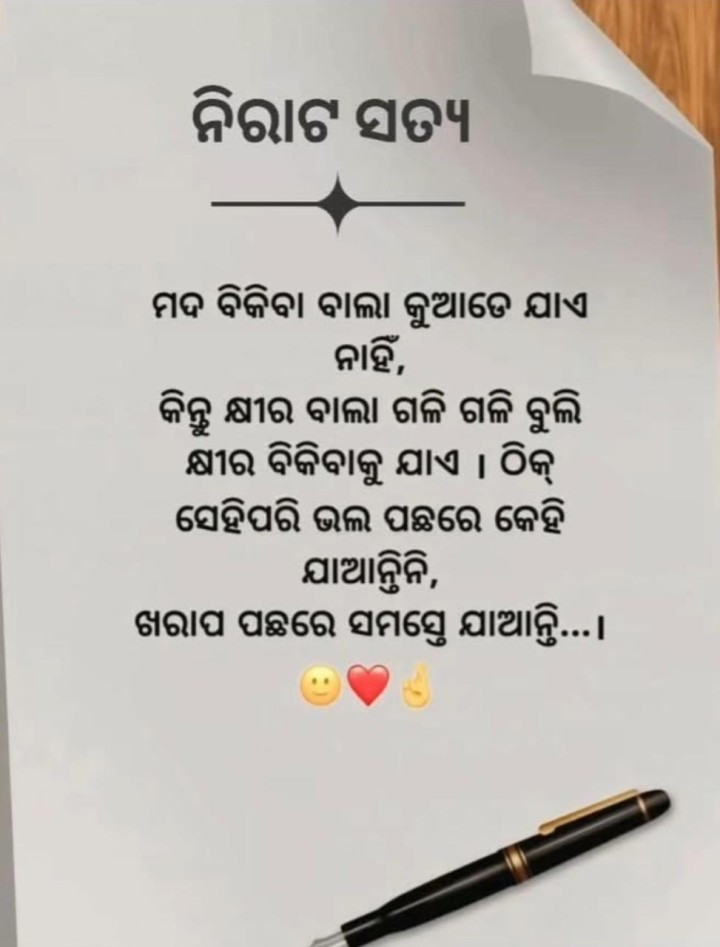 ନିରାଟ ସତ୍ୟ
ମଦ ବିକିବା ବାଲା କୁଆଡେ ଯାଏ
ନାହିଁ,
କିନ୍ତୁ କ୍ଷୀର ବାଲା ଗଳି ଗଳି ବୁଲି
କ୍ଷୀର ବିକିବାକୁ ଯାଏ । ଠିକ୍
ସେହିପରି ଭଲ ପଛରେ କେହି
ଯାଆନ୍ତିନି,
ଖରାପ ପଛରେ ସମସ୍ତେ ଯାଆନ୍ତି...।
🙂❤️🤞